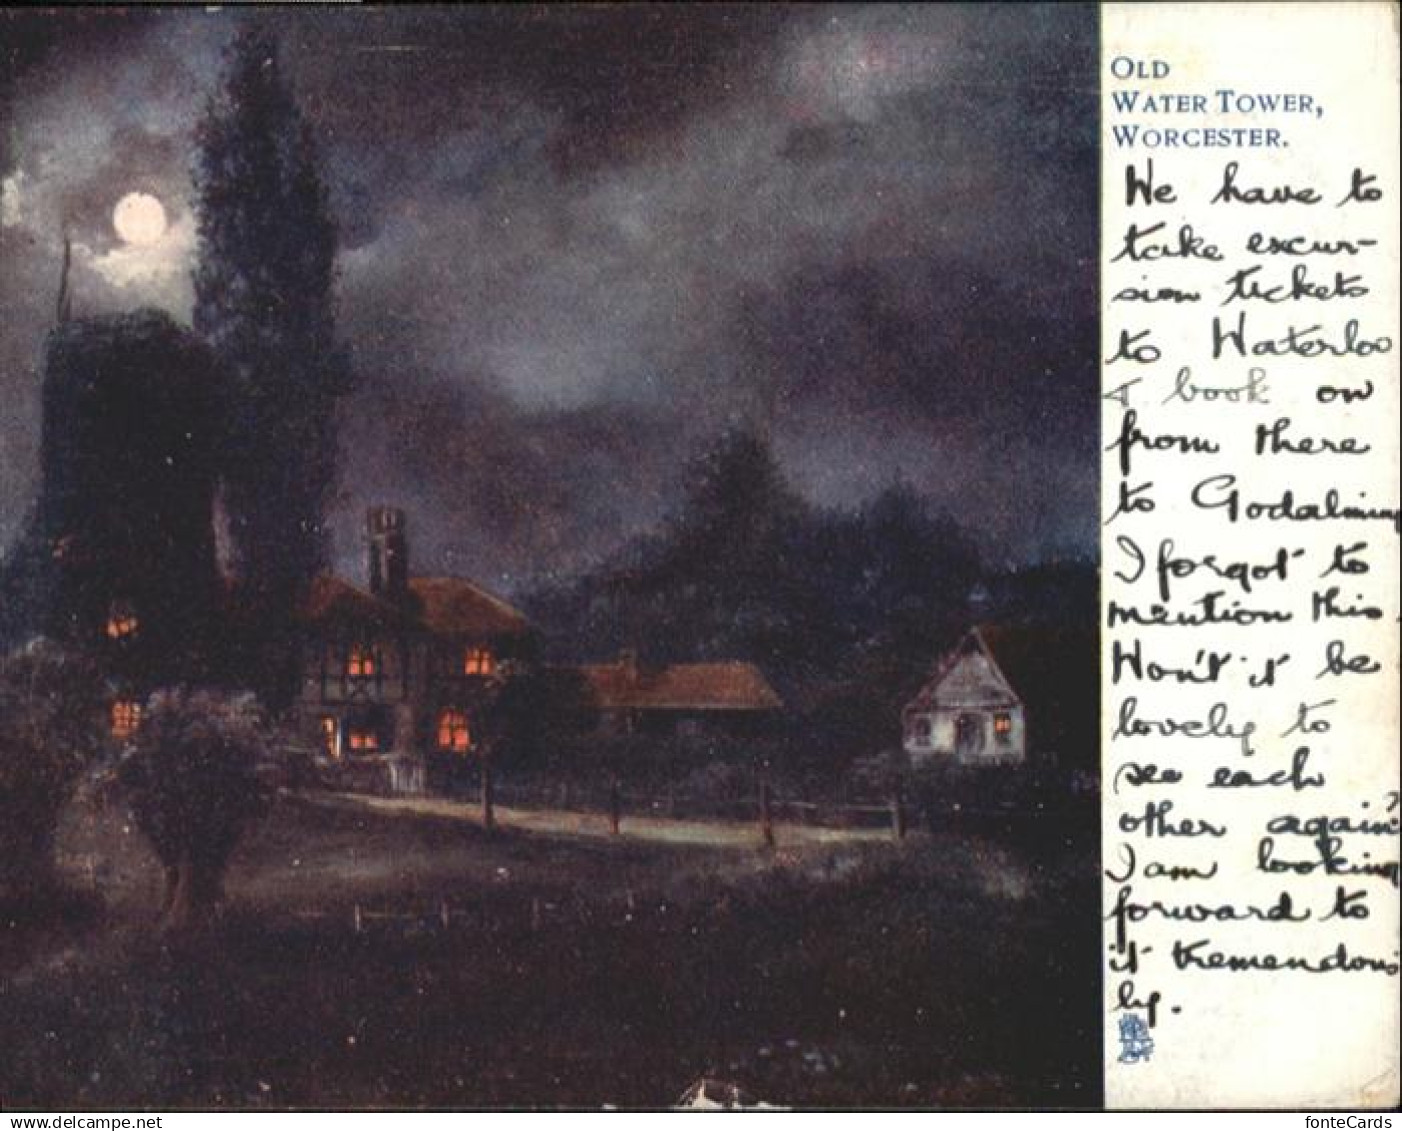 OLD
WATER TOWER,
WORCESTER.
We have to
take excur-
sion tickets
to Waterloo
& book on
from there
to Godalming
I forgot to
mention this.
Won't it be
lovely to
see each
other again?
I am looking
forward to
it tremendous
ly.
www.delcampe.net
fonteCards